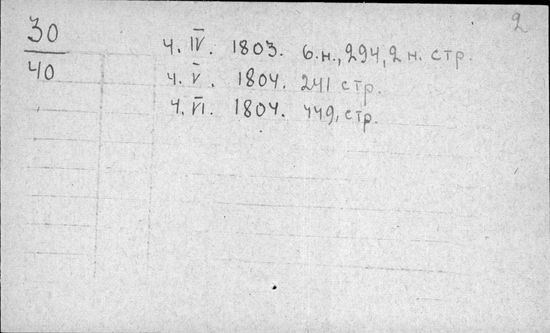 2
30
40
ч. IV. 1803. 6.н., 294, 2 н. стр.
ч. V. 1804. 241 стр.
ч. VI. 1804. 449, стр.